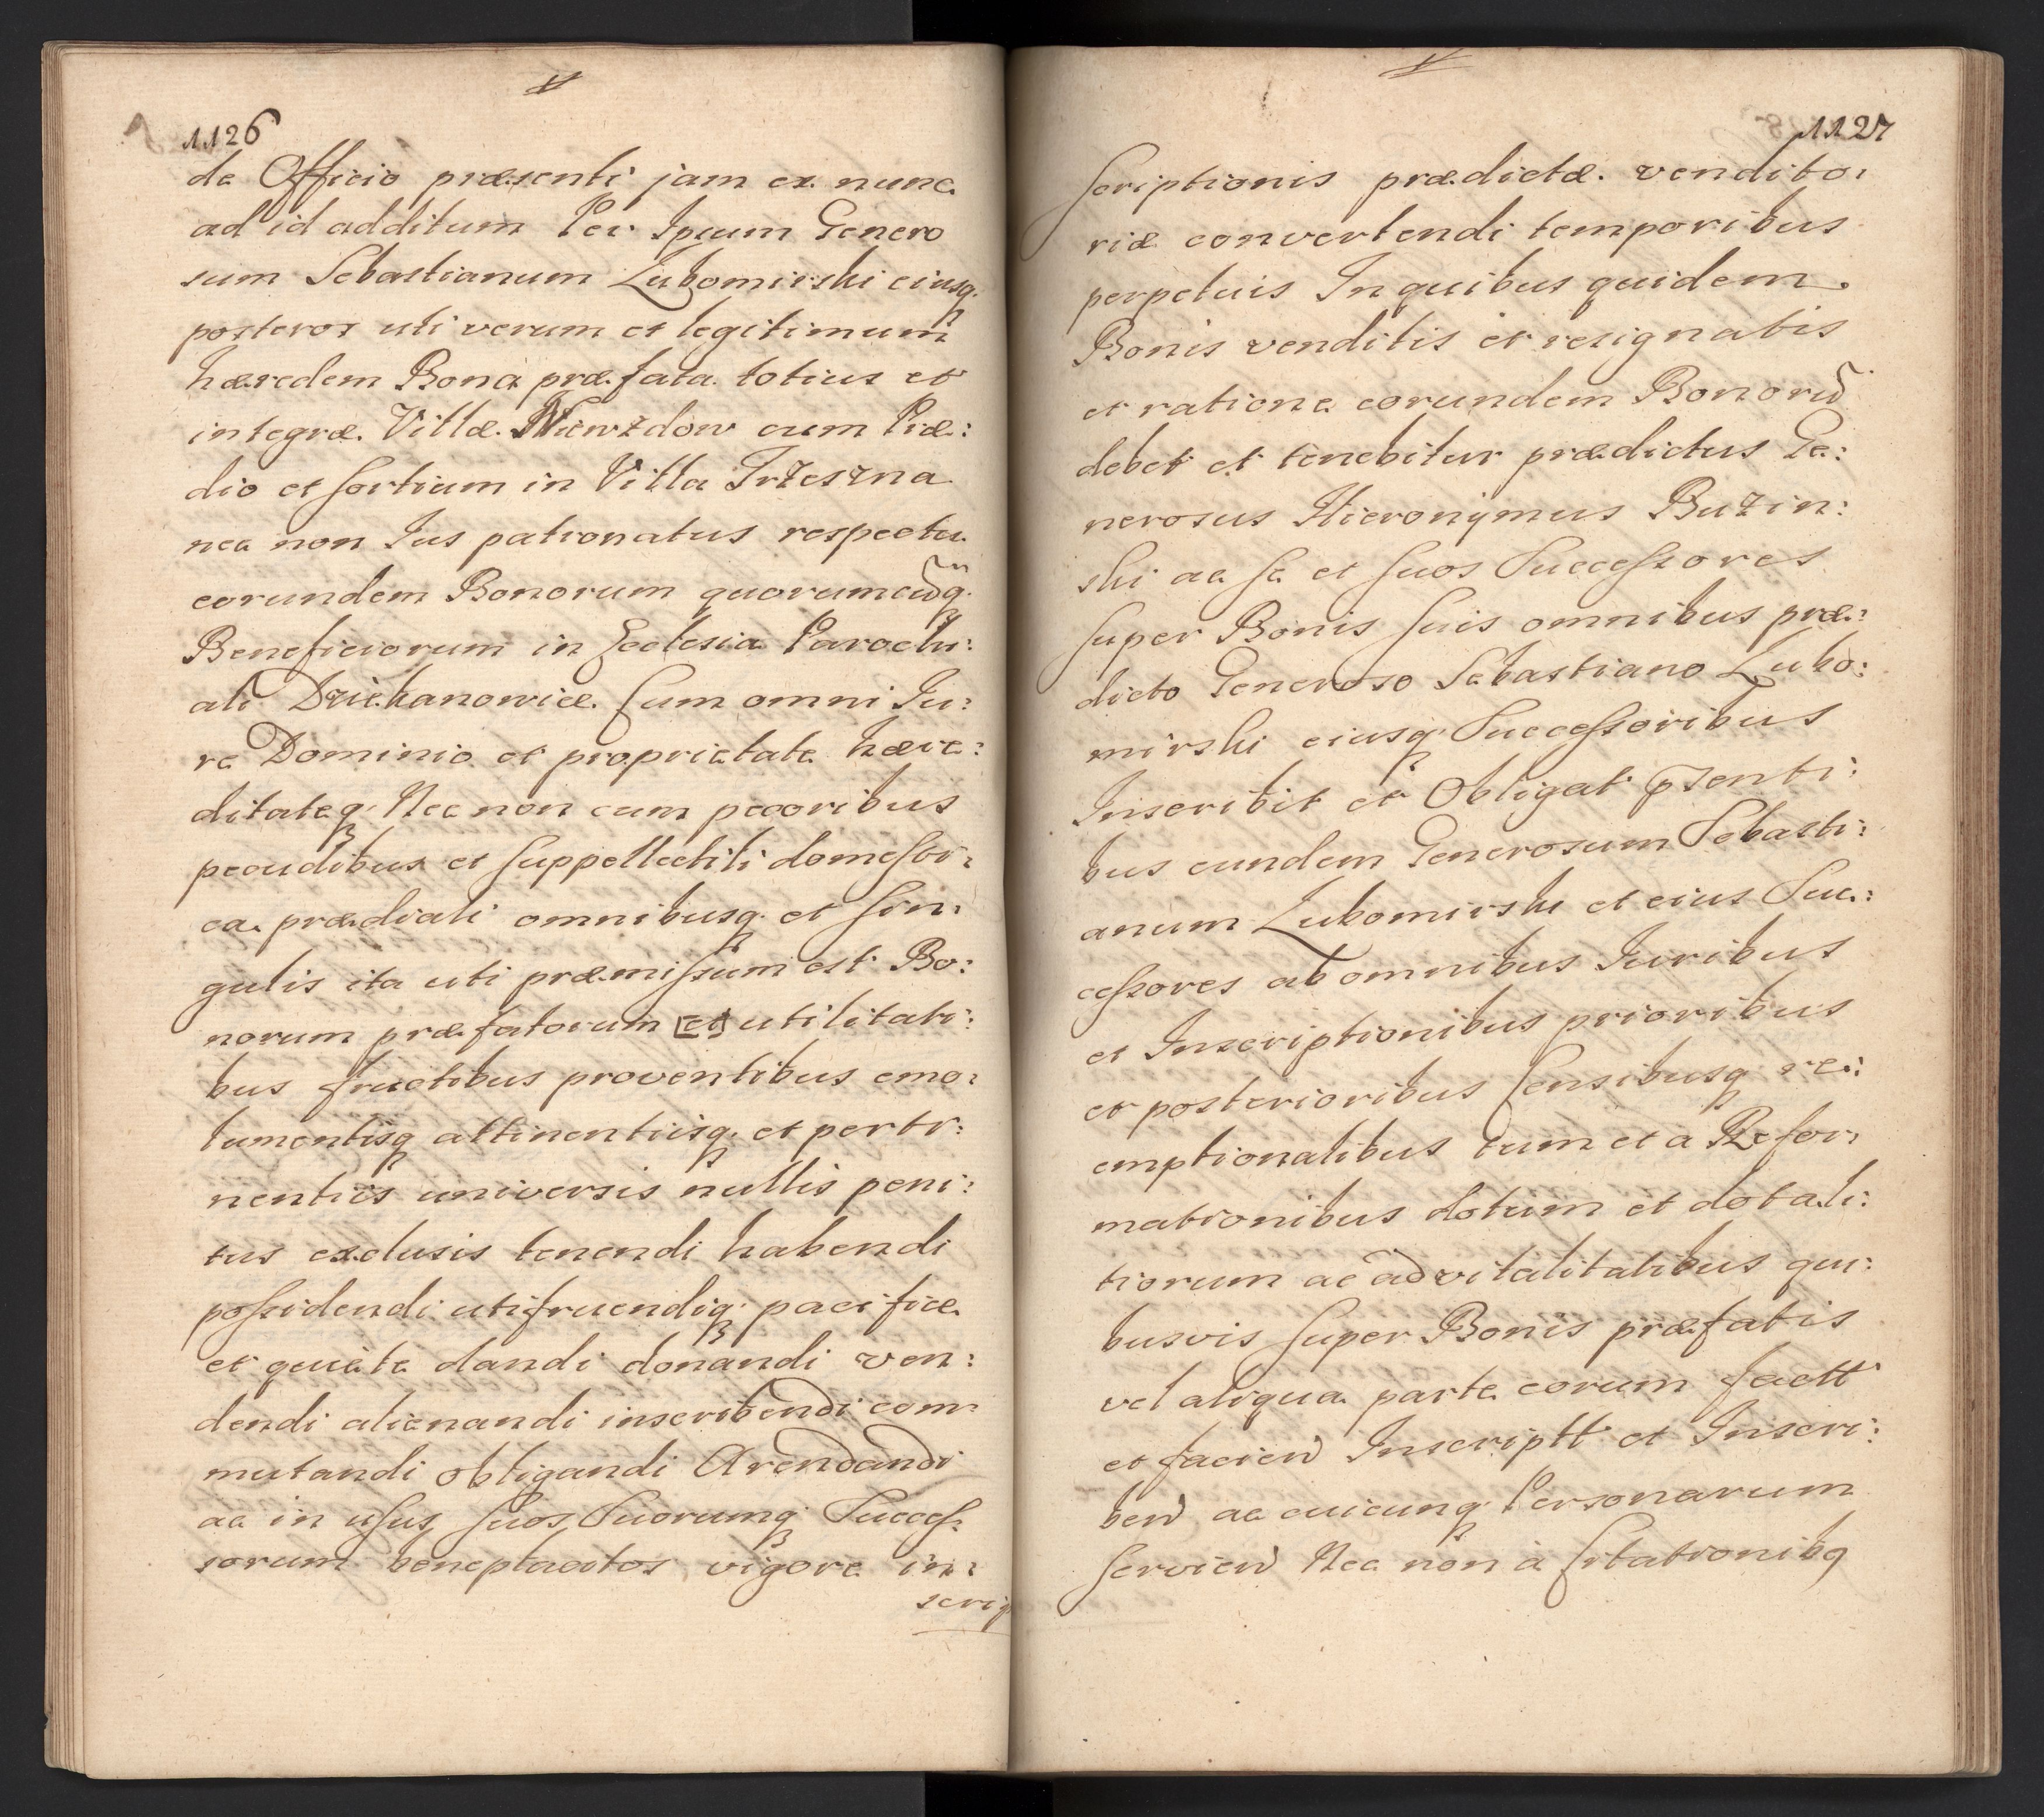 1126
de Officio præsenti jam ex nunc
ad id additum Per Ipsum Genero
sum Sebastianum Lubomirski eiusq.
posteros uti verum et legitimum
hæredem Bona præfata totius et
integræ Villæ Wierzdow cum Præ:
dio et sortium in Villa Trzeszna
nec non Ius patronatus respectu
eorundem Bonorum quorumcuq.
Beneficiorum in Ecclesia Parochi:
ali Dziekanowice. Cum omni Iu:
re Dominio et proprietate hære:
ditateq. Nec non cum pecoribus
pecudibus et suppellectili domesti:
ca prædiali omnibusq. et sin:
gulis ita uti præmissum est Bo:
norum præfatorum [et] utilitati:
bus fructibus proventibus emo:
lumentisq attinentiisq. et perti:
nentiis universis nullis peni:
tus exclusis tenendi habendi
possidendi utifruendiq. pacifice
et quiete dandi donandi ven:
dendi alienandi inscribendi com
mutandi obligandi Arendandi
ac in usus suos Suorumq Succes
sorum beneplacitos vigore in:
scrip
1127
scriptionis prædictæ vendito:
riæ convertendi temporibus
perpetuis In quibus quidem
Bonis venditis et resignatis
et ratione eorundem Bonoru
debet et tenebitur prædictus Ge:
nerosus Hieronymus Buzin:
ski ac se et suos Successores
super Bonis suis omnibus præ:
dicto Generoso Sebastiano Lubo:
mirski eiusq. Successoribus
Inscribit et Obligat psenti:
bus eundem Generosum Sebasti:
anum Lubomirski et eius Suc:
cessores ab omnibus Iuribus
et Inscriptionibus prioribus
et posterioribus Censibusq re:
emptionalibus tum et a Refor:
mationibus dotum et dotali:
tiorum ac advitalitatibus qui:
busvis super Bonis præfatis
vel aliqua parte eorum factt
et faciend Inscriptt et Inscri:
bend ac cuicunq. Personarum
serviend Nec non à Citationibq